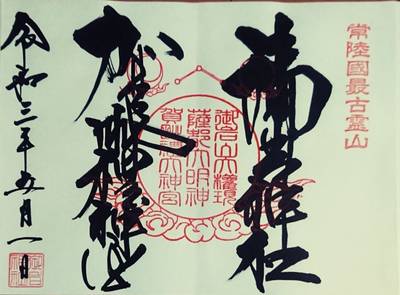 常陸國最古霊山
御岩神社
御岩山大權現
薩都大明神
賀毗禮神宮
令和三年五月一日